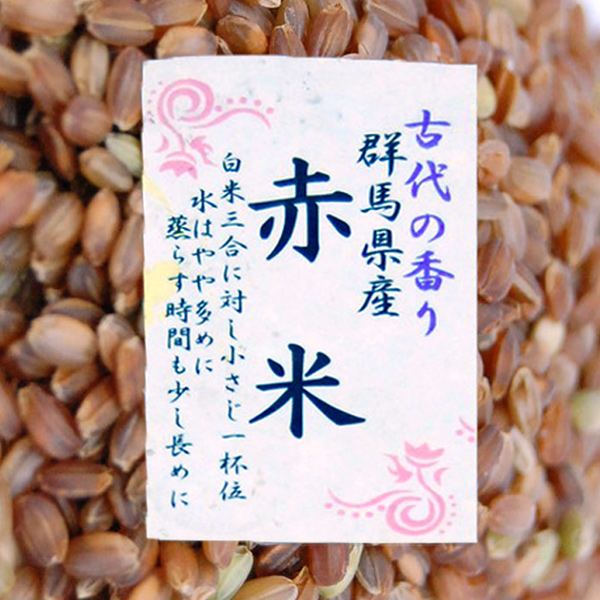 古代の香り
群馬県産
赤米
白米三合に対し小さじ一杯位
水はやや多めに
蒸らす時間も少し長めに